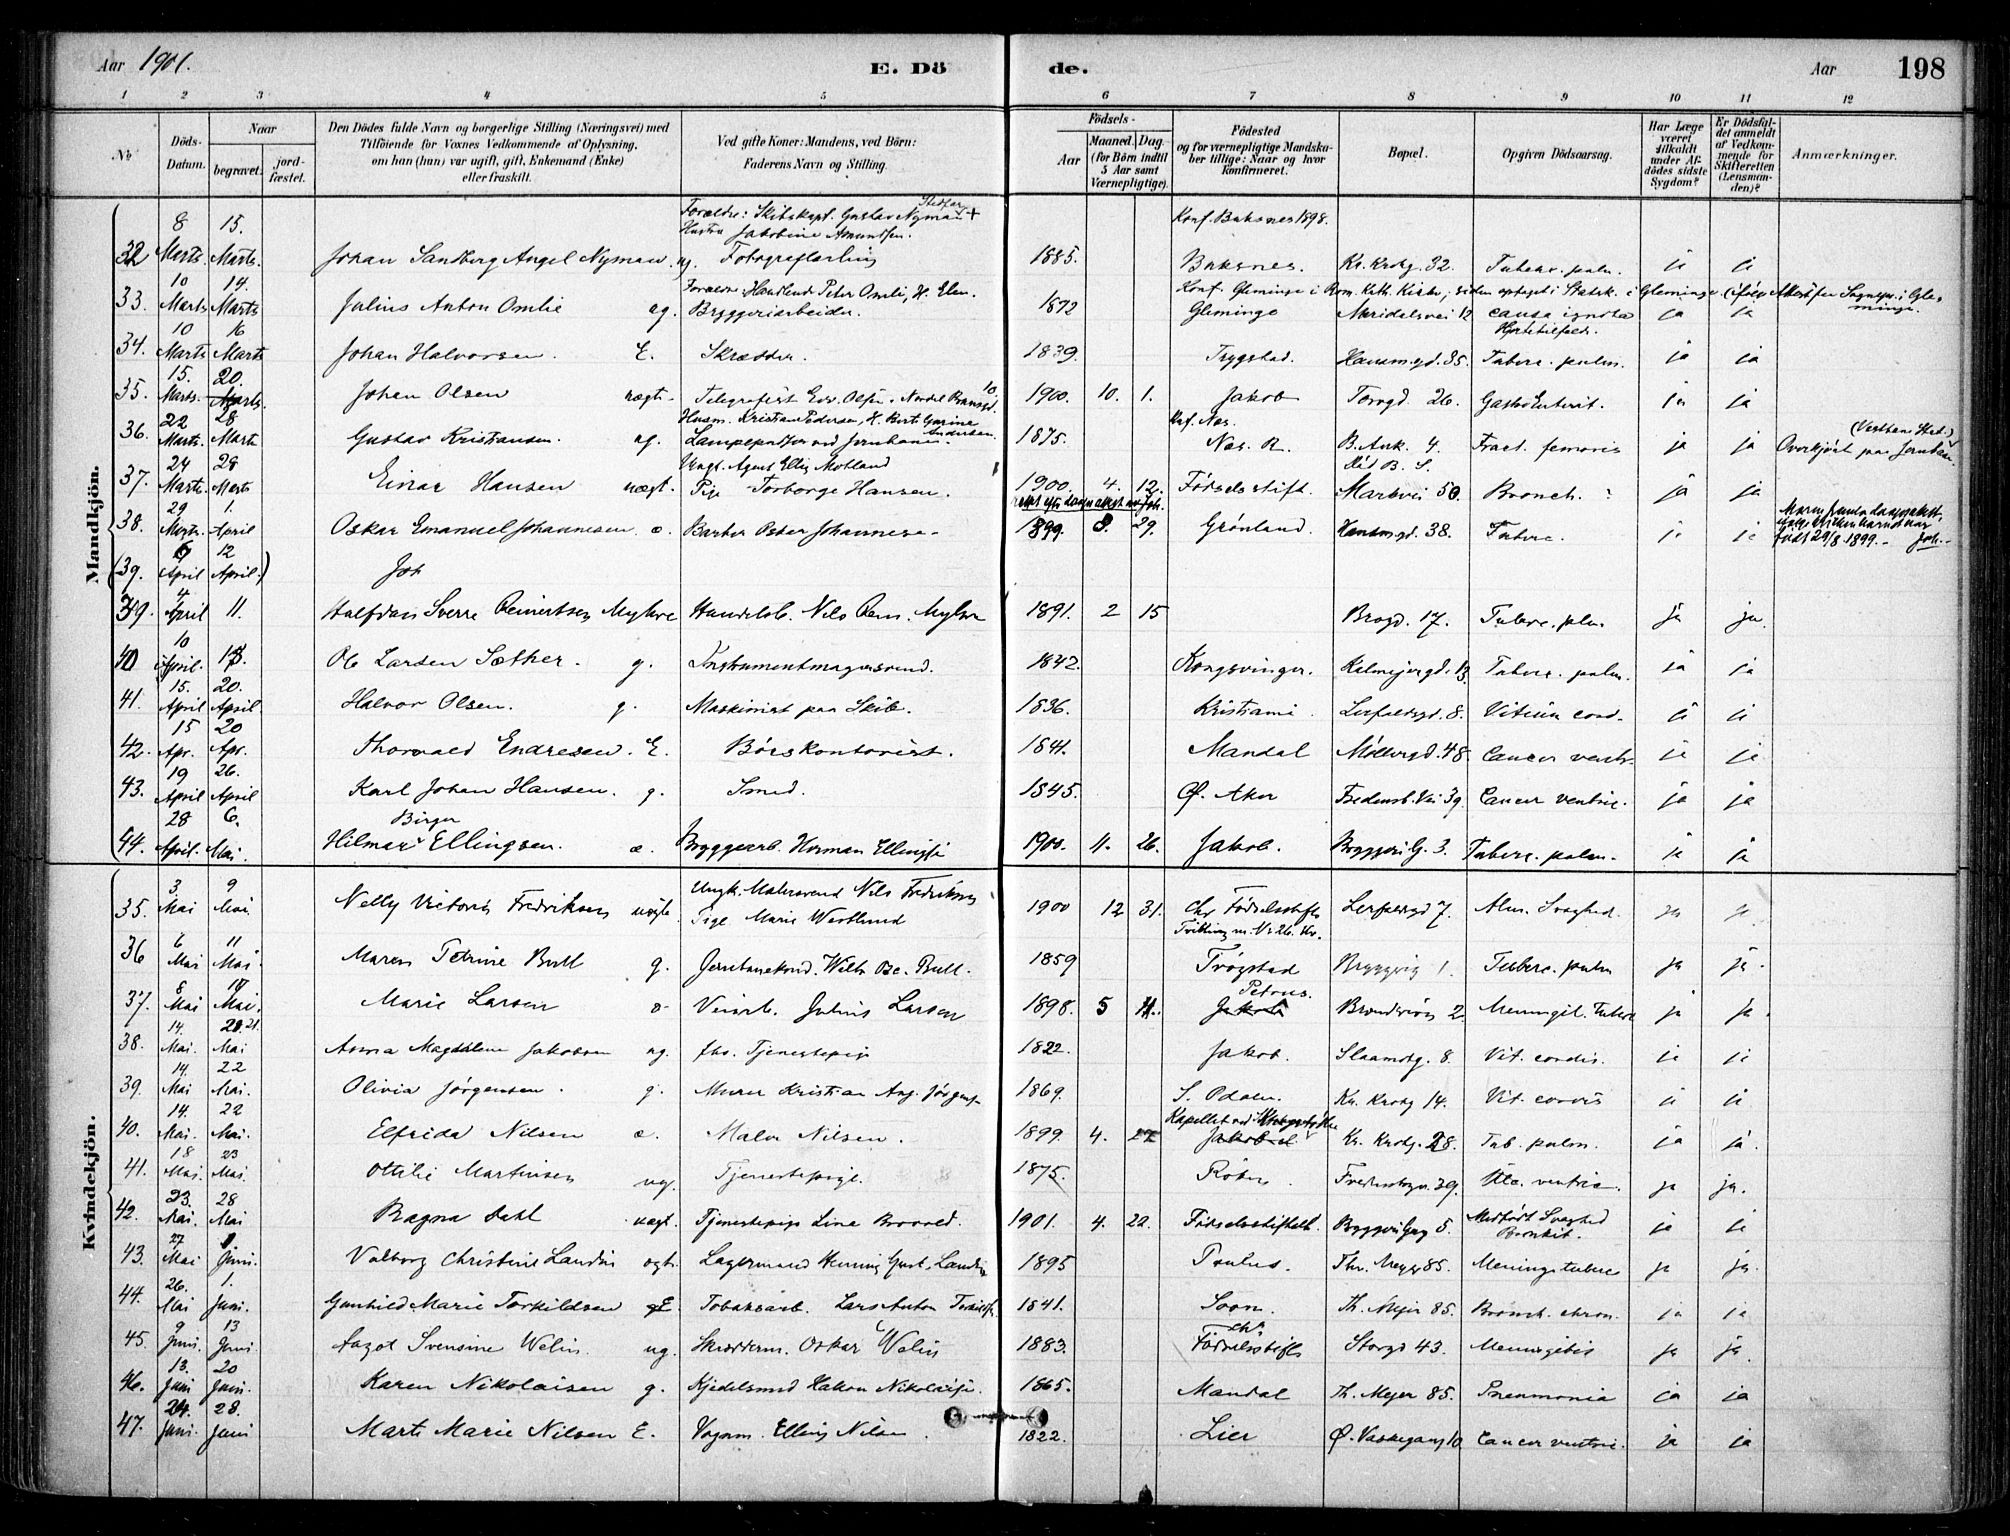 Aar 1901.
E. Dö de.
Aar 198
1 2 3 4 5 6 7 8 9 10 11 12
No
Döds-Datum.
Naar begravet. jordfæstet.
Den Dödes fulde Navn og borgerlige Stilling (Næringsvei) med Tilföiende for Voxnes Vedkommende af Oplysning, om han (hun) var ugift, gift, Enkemand (Enke) eller fraskilt.
Ved gifte Koner: Mandens, ved Börn: Faderens Navn og Stilling.
Födsels- Aar Maaned. Dag. (for Börn indtil 5 Aar samt Værnepligtige).
Födested og for værnepligtige Mandskaber tillige: Naar og hvor konfirmeret.
Bopæl.
Opgiven Dödsaarsag.
Har Læge været tilkaldt under Afdödes sidste Sygdom?
Er Dödsfaldet anmeldt af Vedkommende for Skifteretten (Lensmanden)?
Anmærkninger.
Mandkjön.
Forældre: Skibskapt. Gustav Nyman + Hustru Jakobine Amundsen. Konf. Buksnes 1898.
32 8 Marts. 15. Marts. Johan Sandberg Angel Nyman ug. Fotograflærling 1885. Buksnes. Kr. Krohg. 32. Tuberc. pulm. ja ja
Forældre: Handlende Peter Omlie, H. Elen. Konf. Glemminge i Rom. Kath. Kirke, siden optaget i Statsk. i Glemminge
33. 10 Marts 14. Marts Julius Anton Omlie ug. Bryggeriarbeider. 1872 Glemminge Maridalsvei 12 causa ignota Hjertetilfælde. ja ja
34. 10 Marts 16 Marts Johan Halvorsen. E. Skrædder. 1839. Trygstad. Hausm.gd. 35. Tuberc. pulm. ja ja
35. 15. Marts. 20. Marts. Johan Olsen uægte Telegrafist Edv. Olsen, Nordal Brunsgd. 10 1900. 10. 1. Jakob Torvgd. 26. Gastro Enterit. ja ja
Husm. Kristian Pedersen, H. Berte Gurine Andersen. Konf. Næs.
36. 22 Marts. 28 Marts Gustav Kristiansen. ug. Lampepudser ved Jernbanen. 1875. Næs. R. B. Ank. 4. Fract. femoris ja ja Overkjørt paa Jernban.
Ungk. Agent Ellis Motland
37. 24 Marts. 29 Marts Einar Hansen uægt. Pige Torborge Hansen. 1900. 4. 12. Fødselsstift. Markvei 50. Bronch. ja ja
38. 29 Marts. 1. April Oskar Emanuel Johannesen æ. Barber Oskar Johannesen 1899. 8. 29. Grønland. Hausm.gd. 38. Tuberc. ja ja født 29/8 1899.
(39. 6 April 12 April.)
39. 4 April 11. Halfdan Sverre Reinertsen Myhre Handelsb. Nils Rein. Myhre 1891. 2 15 Brogd. 17. Tuberc. pulm ja ja.
40 10 April. 17. Ole Larsen Sæther. g. Instrumentmagersvend. 1842. Kongsvinger. Kolmejergd. 13. Tuberc. pulm. ja ja
41. 15. April 20. April. Halvor Olsen. g. Maskinist paa Skib. 1836. Kristiania. Lerfaldsgd. 8. Vitium cord. ja ja
42. 15 Apr. 20 Apr. Thorvald Endresen. E. Børskontorist. 1841. Mandal Møllergd. 48. Cancer ventr. ja ja
43. 19 April 26. April Karl Johan Hansen. g. Smed. 1845. Ø. Aker Fredensb. Vei 39. Cancer ventric. ja ja
44. 28 April. 6. Mai. Hilmar Birger Ellingsen. æ. Bryggearb. Herman Ellingsen 1900. 11. 26. Jakob. Bryggeri G. 3. Tuberc. pulm. ja ja
Kvindekjön.
35. 3 Mai 9 Mai. Nelly Victoria Fredriksen uægte. Ungk. Malersvend Nils Fredriksen Pige Marie Westlund 1900 12 31. Chr. Fødselsstift. Tvilling m. Nr 26. Lerfaldsgd 7. Alm. Svaghed. ja ja
36 6 Mai 11 Mai. Maren Petrine Bull g. Jernbanekond. Wilh. Bull. 1859 Trøgstad Bryggerig 1. Tuberc. pulm ja ja.
37. 8 Mai 17 Mai. Marie Larsen æ Veiarb. Julius Larsen 1898. 5 11. Petrus. Jakob Brænderiv 2. Meningit. Tuberc ja ja.
38. 14. Mai. 20. 21. Mai Anna Magdalene Jakobsen ug. fhv. Tjenestepige 1822. Jakob. Slaamotg. 8. Vit. cordis. ja ja
39. 14. Mai 22 Mai. Olivia Jørgensen. g. Murer Kristian Aug. Jørgensen 1869. S. Odalen. Kr. Krohg 14. Vit. cordis ja ja
40. 14. Mai. 22 Mai. Elfrida Nilsen æ. Maler Nilsen. 1899. 4. 27 Kapellet ved Jakob Kr. Krohg. 28. Tub. pulm. ja ja.
41. 18 Mai. 23 Mai. Ottilie Martinsen ug. Tjenestepige. 1875. Fredensbgv. 39. Ulc. ventric. ja ja.
42. 23. Mai. 28 Mai Ragna Dahl uægt. Tjenestepige Lina Brovold. 1901. 4. 22. Fødselsstiftelse. Bryggeri Gag 5. Medfødt Svaghed Bronkit. ja ja
43. 27 Mai 1. Juni. Valborg Christine Landin ægte. Lagermand Henning Gust. Landin 1895 Paulus. Thv. Meyer 85. Mening. tuberc ja ja.
44. 26. Mai 1. Juni. Gunhild Marie Torkildsen E. Tobaksarb. Lars Anton Torkildsen 1841. Soon. Th. Mejer 85. Bronch. chron. ja ja
45. 9 Juni. 13 Juni Aagot Svensine Welin. ug. Skrædderm. Oskar Welin 1883. Chr. Fødselsstift Storgd 43. Meningitis ja ja.
46. 13. Juni 20 Juni. Karen Nikolaisen g. Kjedelsmed Hakon Nikolaisen. 1865. Mandal Th. Mejer 85. Pneumonia ja ja
47. 24. Juni. 28. Juni Marte Marie Nilsen E. Vognm. Elling Nilsen. 1822. Lier Ø. Vaskegang 10. Cancer ventric. ja ja